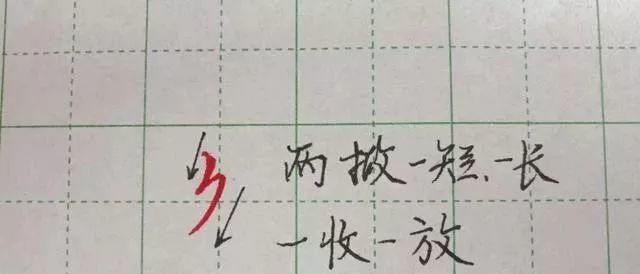 两撇一短、一长
一收一放